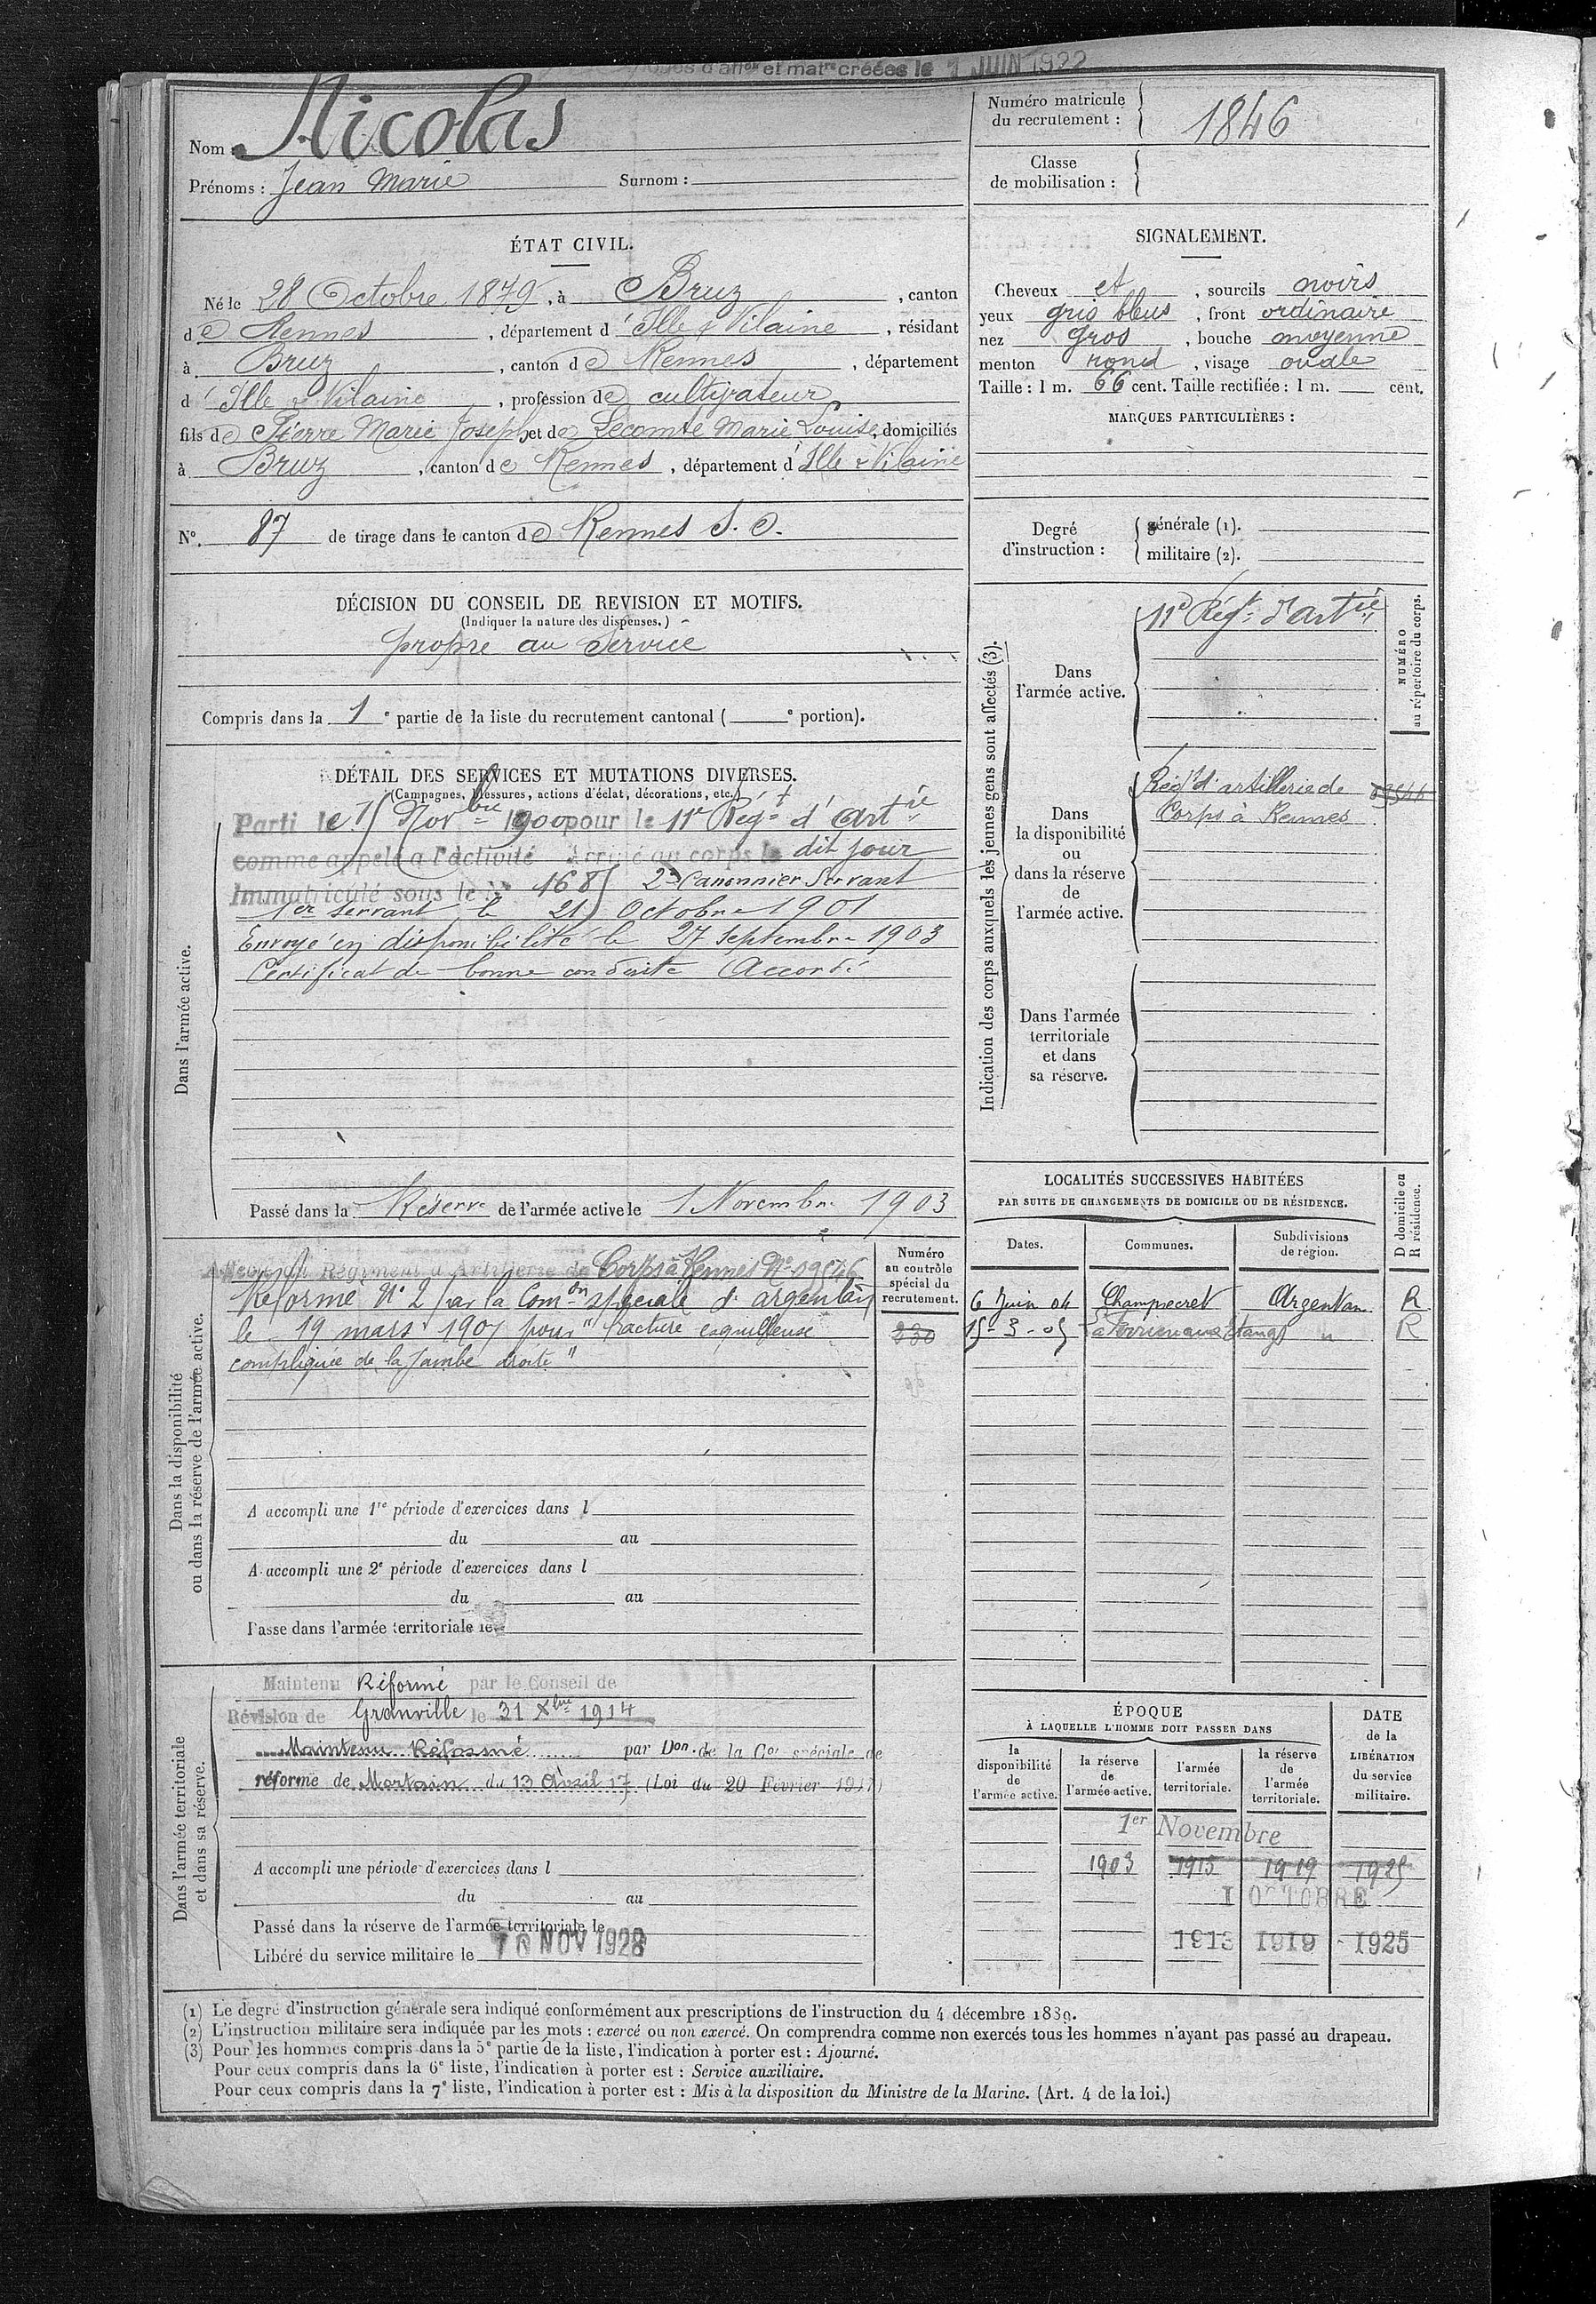 et mat^re créées le 1 JUIN 1922
Nom : Nicolas
Prénoms : Jean Marie Surnom :
ÉTAT CIVIL.
Né le 28 Octobre 1879, à Bruz, canton
de Rennes, département d'Ille & Vilaine, résidant
à Bruz, canton de Rennes, département
d'Ille & Vilaine, profession de cultivateur
fils de Pierre Marie Joseph et de Lecomte Marie Louise, domiciliés
à Bruz, canton de Rennes, département d'Ille & Vilaine
N°. 87 de tirage dans le canton de Rennes S. O.
DÉCISION DU CONSEIL DE REVISION ET MOTIFS.
(Indiquer la nature des dispenses.)
propre au service
Compris dans la 1e partie de la liste du recrutement cantonal ( e portion).
DÉTAIL DES SERVICES ET MUTATIONS DIVERSES.
(Campagnes, blessures, actions d'éclat, décorations, etc.)
Dans l'armée active.
Parti le 15 Novbre 1900 pour le 11e Régt d'Artie
comme appelé à l'activité Arrivé au corps le dit jour
Immatriculé sous le N° 1685 2e Canonnier Servant
1er servant le 21 Octobre 1901
Envoyé en disponibilité le 27 Septembre 1903
Certificat de bonne conduite Accordé
Passé dans la Réserve de l'armée active le 1 Novembre 1903
Dans la disponibilité
ou dans la réserve de l'armée active.
Régiment d'Artillerie de Corps à Rennes N° 09546
Réformé N° 2 par la Comon spéciale d'argentan
le 19 mars 1907 pour "fracture esquilleuse
compliquée de la Jambe droite"
Numéro
au contrôle
spécial du
recrutement.
230
A accompli une 1re période d'exercices dans l
du au
A accompli une 2e période d'exercices dans l
du au
Passé dans l'armée territoriale le
Dans l'armée territoriale
et dans sa réserve.
Maintenu Réformé par le Conseil de
Révision de Granville le 31 Xbre 1914
Maintenu Réformé par Don. de la Con spéciale de
réforme de Mortain du 13 Avril 17 (Loi du 20 Février 1917)
A accompli une période d'exercices dans l
du au
Passé dans la réserve de l'armée territoriale le
Libéré du service militaire le 10 NOV 1928
Numéro matricule
du recrutement : 1846
Classe
de mobilisation :
SIGNALEMENT.
Cheveux et, sourcils noirs
yeux gris bleus, front ordinaire
nez gros, bouche moyenne
menton rond, visage ovale
Taille : 1 m. 66 cent. Taille rectifiée : 1 m. cent.
MARQUES PARTICULIÈRES :
Degré
d'instruction :
générale (1).
militaire (2).
Indication des corps auxquels les jeunes gens sont affectés (3).
NUMÉRO
au répertoire du corps.
Dans
l'armée active.
11e Régt d'Artie
Dans
la disponibilité
ou
dans la réserve
de
l'armée active.
Régt d'artillerie de
Corps à Rennes
09546
Dans l'armée
territoriale
et dans
sa réserve.
LOCALITÉS SUCCESSIVES HABITÉES
PAR SUITE DE CHANGEMENTS DE DOMICILE OU DE RÉSIDENCE.
D domicile ou
R résidence.
Dates. Communes. Subdivisions
de région.
6 Juin 04 Champsecret Argentan R
15-3-05 La Ferrière aux Etangs " R
ÉPOQUE
À LAQUELLE L'HOMME DOIT PASSER DANS
la
disponibilité
de
l'armée active.
la réserve
de
l'armée active.
l'armée
territoriale.
la réserve
de
l'armée
territoriale.
DATE
de la
LIBÉRATION
du service
militaire.
1er Novembre
1903 1913 1919 1925
1 OCTOBRE
1913 1919 1925
(1) Le degré d'instruction générale sera indiqué conformément aux prescriptions de l'instruction du 4 décembre 1889.
(2) L'instruction militaire sera indiquée par les mots : exercé ou non exercé. On comprendra comme non exercés tous les hommes n'ayant pas passé au drapeau.
(3) Pour les hommes compris dans la 5e partie de la liste, l'indication à porter est : Ajourné.
Pour ceux compris dans la 6e liste, l'indication à porter est : Service auxiliaire.
Pour ceux compris dans la 7e liste, l'indication à porter est : Mis à la disposition du Ministre de la Marine. (Art. 4 de la loi.)